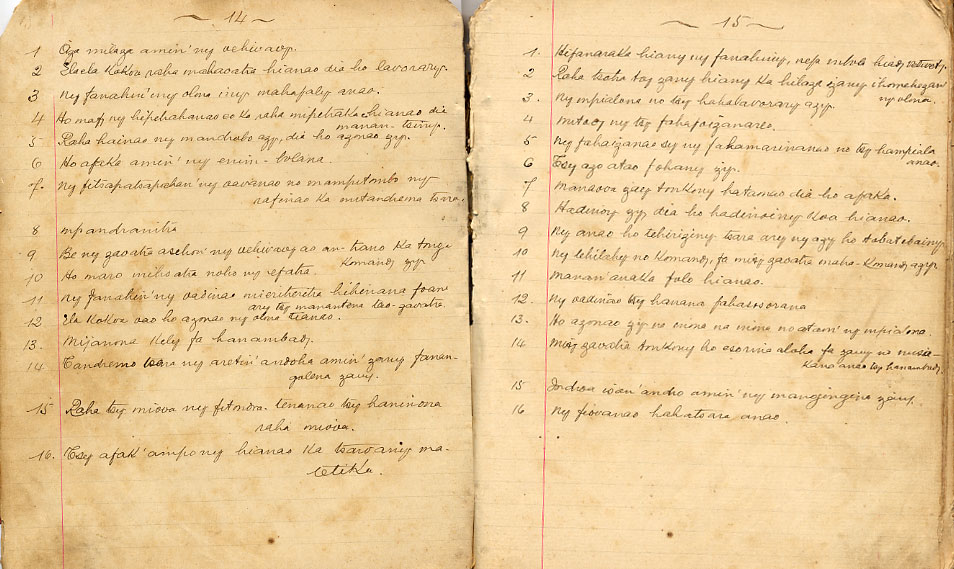 14
1 Aza milaza amin' ny vehivavy.
2 Elaela Kokoa raha mahaoatra hianao dia ho lavorary.
3 Ny fanahin' ny olona izy mahafaly anao.
4 Ho maty ny hifitahanao eo ka raha mifitaka hianao dia
manan-tsiny.
5 Raha hainao ny mandroho azy, dia ho azonao izy.
6 Ho afaka amin' ny enim-bolana.
7. Ny fitsapatsapahan' ny vadinao no mampitombo ny
rafinao ka mitandrema tsara.
8 mpandranitra
9 Be ny zavatra asehon' ny vehivavy ao an-trano ka tonga
Komandy izy.
10 Ho maro mihoatra noho ny efatra.
11 Ny fanahin' ny vadinao mieritreritra hihinana foana
ary tsy manantona tao-zavatra.
12 Ela Kokoa vao ho azonao ny olona tianao.
13. Mijanona Kely fa hanambady.
14 Tandremo tsara ny aretin' andoha amin' zany fanan-
galena zany.
15 Raha tsy miova ny fitondra-tenanao tsy haninona
raha miova.
16. Tsy afak' ampo ny hianao Ka tsaroany ma-
tetika.
15
1. Hifanaraka hiany ny fanahiny,
2 Raha tsaho toy zany hiany Ka hilaza izany ihomehezan'
ny olona.
3. Ny mpidona no tsy hahalavorary azy.
4 mitovy ny tsy fahafoizanareo.
5 Ny fahaizanao sy ny fahamarinanao no tsy hampiala
anao.
6 Tsy azo atao fohany izy.
7 Manaova zavatra tonkony hataonao dia ho afaka.
8 Hadinoy izy, dia ho hadinoiny Koa hianao.
9 Ny anao ho tehiriziny tsara ary ny azy ho
10 Ny lehilahy no Komandy, fa misy zavatra maha-Komandy azy.
11 Manan' anaka folo hianao.
12. Ny vadinao tsy hanana fahasosorana
13. Ho azonao izy na inona na inona no ataon' ny mpidona.
14 Misy zavatra tonkony ho esorina aloha fa zany no
Kana anao tsy hanambady.
15 Indroa isan' andro amin' ny mangingina zany.
16. Ny fiovanao hahatsara anao.